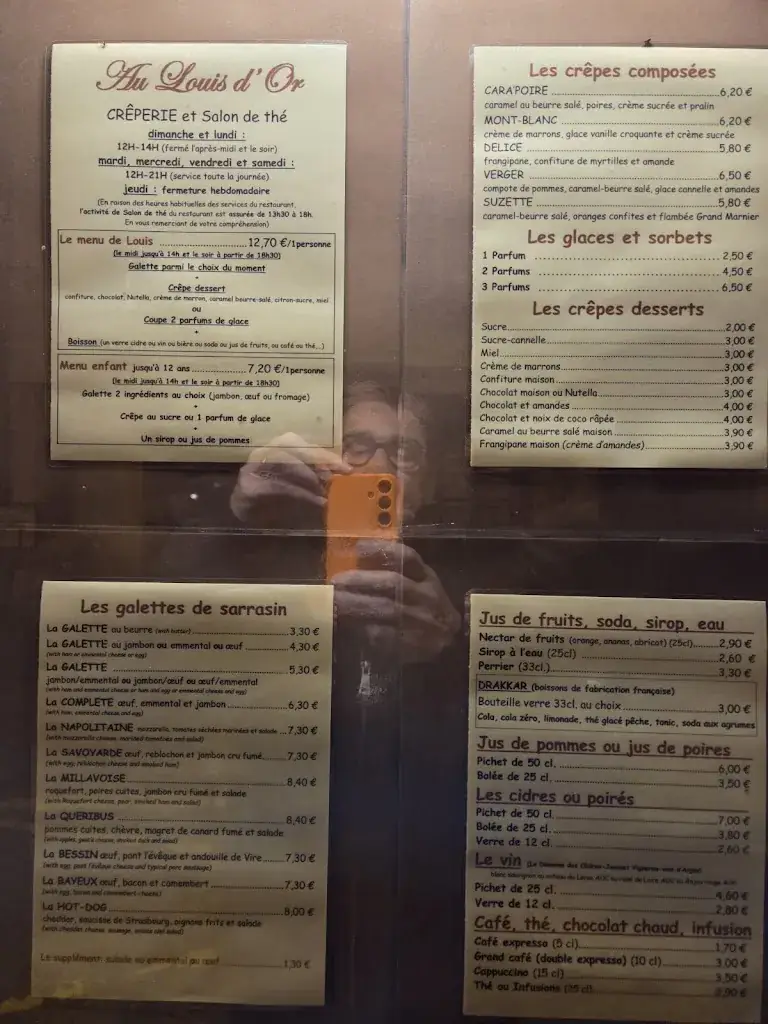 Au Louis d'Or
CRÊPERIE et Salon de thé
dimanche et lundi :
12H-14H (fermé l'après-midi et le soir)
mardi, mercredi, vendredi et samedi :
12H-21H (service toute la journée)
jeudi : fermeture hebdomadaire
(En raison des heures habituelles des services du restaurant,
l'activité de Salon de thé du restaurant est assurée de 13h30 à 18h.
En vous remerciant de votre compréhension)
Le menu de Louis ........................12,70 €/1personne
(le midi jusqu'à 14h et le soir à partir de 18h30)
Galette parmi le choix du moment
+
Crêpe dessert
confiture, chocolat, Nutella, crème de marron, caramel beurre-salé, citron-sucre, miel
ou
Coupe 2 parfums de glace
+
Boisson (un verre cidre ou vin ou bière ou soda ou jus de fruits, ou café ou thé....)
Menu enfant jusqu'à 12 ans ...............7,20 €/1personne
(le midi jusqu'à 14h et le soir à partir de 18h30)
Galette 2 ingrédients au choix (jambon, œuf ou fromage)
+
Crêpe au sucre ou 1 parfum de glace
+
Un sirop ou jus de pommes
Les crêpes composées
CARA'POIRE ........................................6,20 €
caramel au beurre salé, poires, crème sucrée et pralin
MONT-BLANC ........................................6,20 €
crème de marrons, glace vanille croquante et crème sucrée
DELICE ........................................5,80 €
frangipane, confiture de myrtilles et amande
VERGER ........................................6,50 €
compote de pommes, caramel-beurre salé, glace cannelle et amandes
SUZETTE ........................................5,80 €
caramel-beurre salé, oranges confites et flambée Grand Marnier
Les glaces et sorbets
1 Parfum ........................................ 2,50 €
2 Parfums ........................................ 4,50 €
3 Parfums ........................................ 6,50 €
Les crêpes desserts
Sucre........................................2,00 €
Sucre-cannelle........................................3,00 €
Miel........................................3,00 €
Crème de marrons........................................3,00 €
Confiture maison........................................3,00 €
Chocolat maison ou Nutella........................................3,00 €
Chocolat et amandes........................................4,00 €
Chocolat et noix de coco râpée........................................4,00 €
Caramel au beurre salé maison........................................3,90 €
Frangipane maison (crème d'amandes)........................................3,90 €
Les galettes de sarrasin
La GALETTE au beurre (with butter)........................................3,30 €
La GALETTE au jambon ou emmental ou œuf ...............4,30 €
(with ham or emmental cheese or egg)
La GALETTE ........................................5,30 €
jambon/emmental ou jambon/œuf ou œuf/emmental
(with ham and emmental cheese or ham and egg or emmental cheese and egg)
La COMPLETE œuf, emmental et jambon ....................6,30 €
(with ham, emmental cheese and egg)
La NAPOLITAINE mozzarella, tomates séchées marinées et salade ...7,30 €
(with mozzarella cheese, marined tomatoes and salad)
La SAVOYARDE œuf, reblochon et jambon cru fumé........7,30 €
(with egg, reblochon cheese and smoked ham)
La MILLAVOISE ........................................8,40 €
roquefort, poires cuites, jambon cru fumé et salade
(with Roquefort cheese, pear, smoked ham and salad)
La QUERIBUS ........................................8,40 €
pommes cuites, chèvre, magret de canard fumé et salade
(with apples, goat's cheese, smoked duck and salad)
La BESSIN œuf, pont l'évêque et andouille de Vire.......7,30 €
(with egg, pont l'évêque cheese and typical pork sausage)
La BAYEUX œuf, bacon et camembert ....................7,30 €
(with egg, bacon and camembert cheese)
La HOT-DOG........................................8,00 €
cheddar, saucisse de Strasbourg, oignons frits et salade
(with cheddar cheese, sausage, onions and salad)
Le supplément: salade ou emmental ou œuf ...............1,30 €
Jus de fruits, soda, sirop, eau
Nectar de fruits (orange, ananas, abricot) (25cl)........2,90 €
Sirop à l'eau (25cl) ........................................2,60 €
Perrier (33cl.)........................................3,30 €
DRAKKAR (boissons de fabrication française)
Bouteille verre 33cl. au choix ....................3,00 €
Cola, cola zéro, limonade, thé glacé pêche, tonic, soda aux agrumes
Jus de pommes ou jus de poires
Pichet de 50 cl. ........................................6,00 €
Bolée de 25 cl. ........................................3,50 €
Les cidres ou poirés
Pichet de 50 cl. ........................................7,00 €
Bolée de 25 cl. ........................................3,80 €
Verre de 12 cl. ........................................2,60 €
Le vin
Pichet de 25 cl. ........................................4,60 €
Verre de 12 cl. ........................................2,80 €
Café, thé, chocolat chaud, infusion
Café expresso (5 cl)........................................1,70 €
Grand café (double expresso) (10 cl)....................3,00 €
Cappuccino (15 cl) ........................................3,50 €
Thé ou Infusions (35 cl)........................................2,90 €